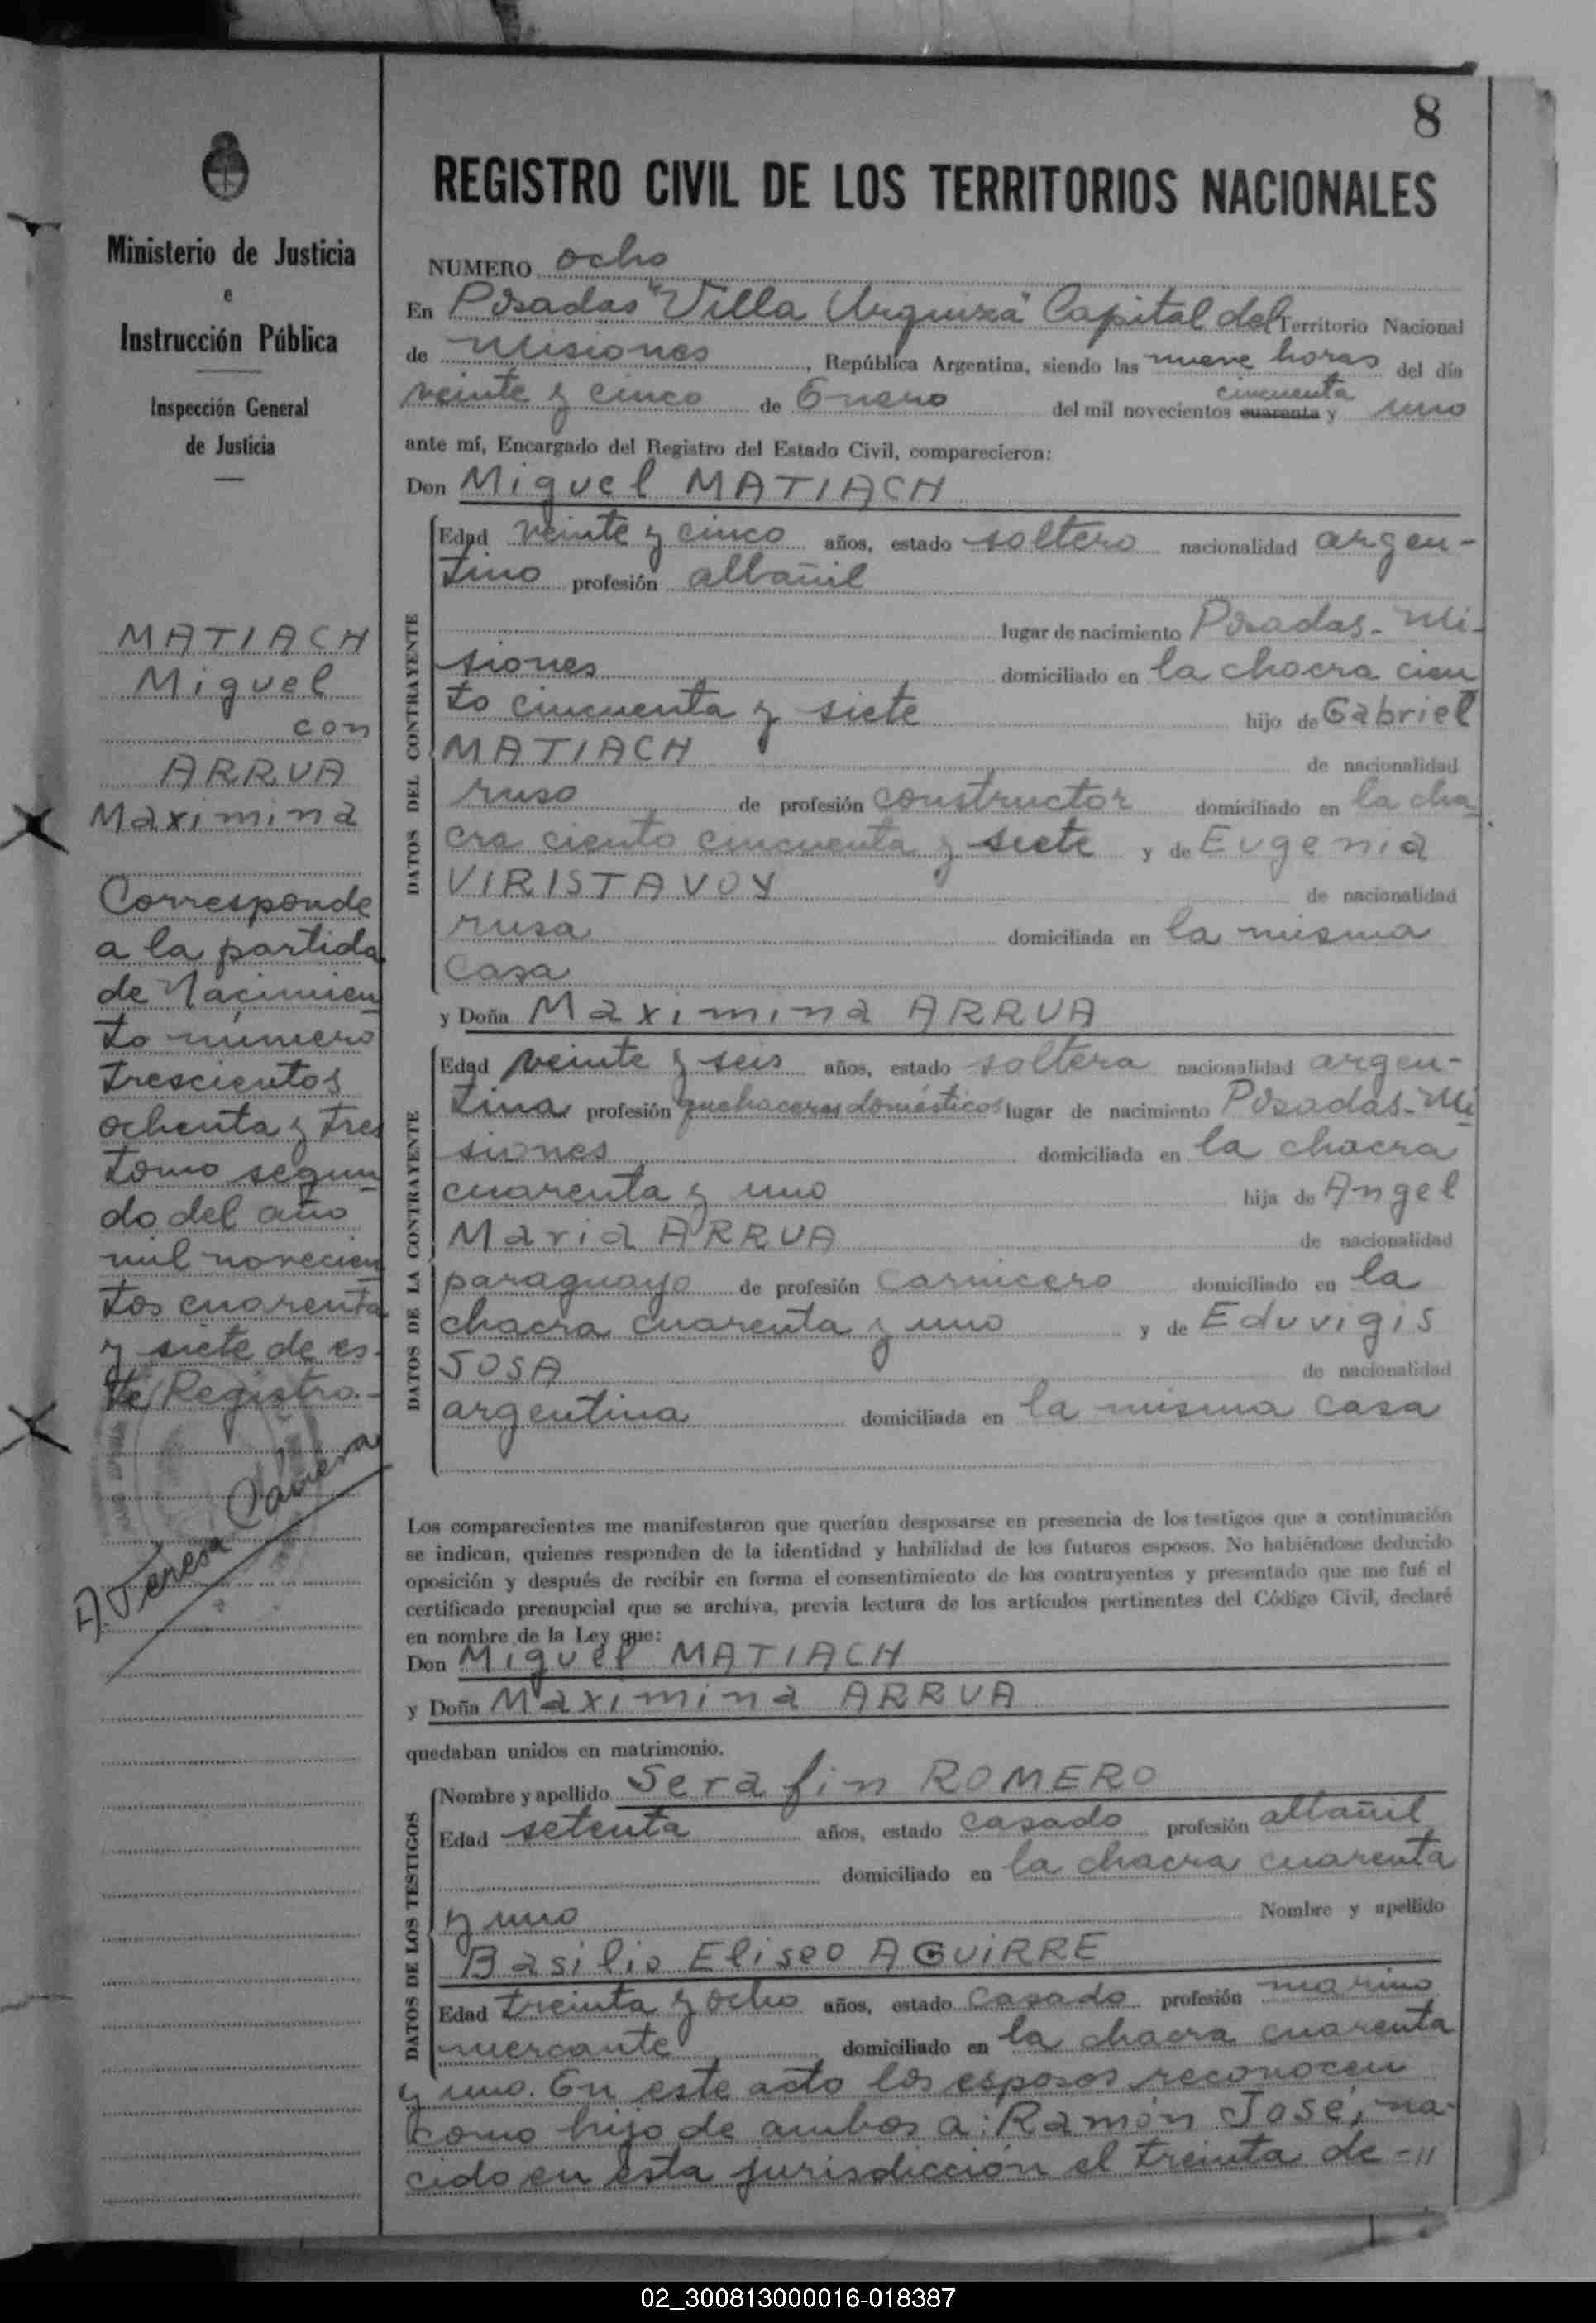 8
Ministerio de Justicia
e
Instrucción Pública
Inspección General
de Justicia
MATIACH
Miguel
con
ARRUA
Maximina
Corresponde
a la partida
de Nacimien
to número
trescientos
ochenta y tres
tomo segun
do del año
mil novecien
tos cuarenta
y siete de es-
te Registro.-
REGISTRO CIVIL DE LOS TERRITORIOS NACIONALES
NUMERO ocho
En Posadas "Villa Urquiza" Capital del Territorio Nacional
de Misiones, República Argentina, siendo las nueve horas del día
veinte y cinco de Enero del mil novecientos cuarenta cincuenta y uno
ante mí, Encargado del Registro del Estado Civil, comparecieron:
Don Miguel MATIACH
DATOS DEL CONTRAYENTE
Edad veinte y cinco años, estado soltero nacionalidad argen-
tino profesión albañil
lugar de nacimiento Posadas-Mi-
siones domiciliado en la chacra cien
to cincuenta y siete hijo de Gabriel
MATIACH de nacionalidad
ruso de profesión constructor domiciliado en la cha
cra ciento cincuenta y siete y de Eugenia
VIRISTAVOY de nacionalidad
rusa domiciliada en la misma
casa
y Doña Maximina ARRUA
DATOS DE LA CONTRAYENTE
Edad veinte y seis años, estado soltera nacionalidad argen-
tina profesión quehaceres domésticos lugar de nacimiento Posadas-Mi
siones domiciliada en la chacra
cuarenta y uno hija de Angel
Maria ARRUA de nacionalidad
paraguayo de profesión carnicero domiciliado en la
chacra cuarenta y uno y de Eduvigis
SOSA de nacionalidad
argentina domiciliada en la misma casa
Los comparecientes me manifestaron que querían desposarse en presencia de los testigos que a continuación
se indican, quienes responden de la identidad y habilidad de los futuros esposos. No habiéndose deducido
oposición y después de recibir en forma el consentimiento de los contrayentes y presentado que me fué el
certificado prenupcial que se archiva, previa lectura de los artículos pertinentes del Código Civil, declaré
en nombre de la Ley que:
Don Miguel MATIACH
y Doña Maximina ARRUA
quedaban unidos en matrimonio.
DATOS DE LOS TESTIGOS
Nombre y apellido Serafin ROMERO
Edad setenta años, estado casado profesión albañil
domiciliado en la chacra cuarenta
y uno Nombre y apellido
Basilio Eliseo AGUIRRE
Edad treinta y ocho años, estado casado profesión marino
mercante domiciliado en la chacra cuarenta
y uno. En este acto los esposos reconocen
como hijo de ambos a: Ramón José, na-
cido en esta jurisdicción el treinta de -"
02_300813000016-018387